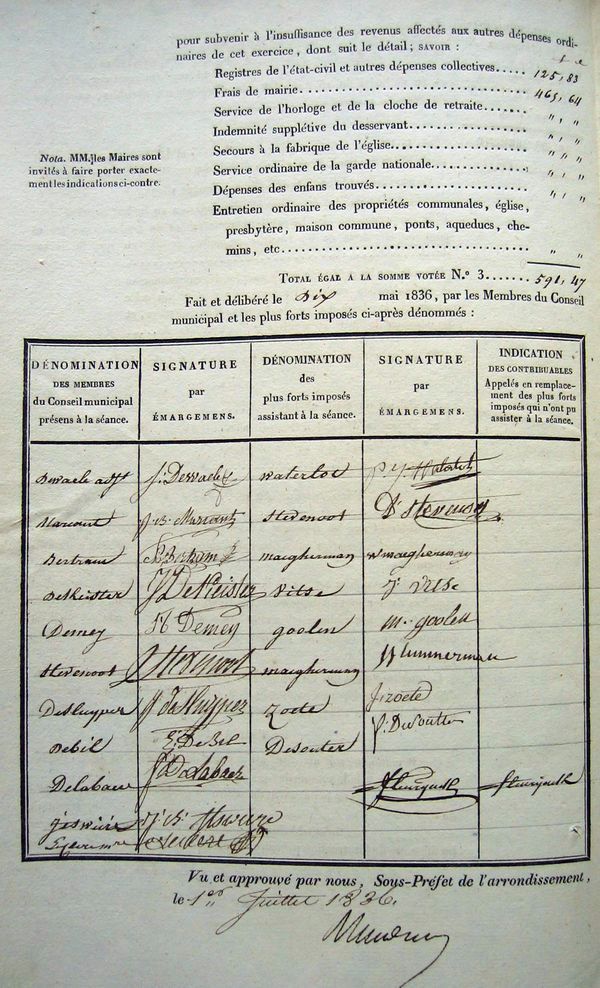 pour subvenir à l'insuffisance des revenus affectés aux autres dépenses ordi-
naires de cet exercice, dont suit le détail; SAVOIR :
Registres de l'état-civil et autres dépenses collectives..... 125, 83
Frais de mairie 465, 64
Service de l'horloge et de la cloche de retraite " "
Indemnité supplétive du desservant " "
Secours à la fabrique de l'église " "
Service ordinaire de la garde nationale " "
Dépenses des enfans trouvés " "
Entretien ordinaire des propriétés communales, église,
presbytère, maison commune, ponts, aqueducs, che-
mins, etc " "
Nota. MM. les Maires sont
invités à faire porter exacte-
ment les indications ci-contre.
TOTAL ÉGAL A LA SOMME VOTÉE N.º 3 591, 47
Fait et délibéré le Dix mai 1836, par les Membres du Conseil
municipal et les plus forts imposés ci-après dénommés :
DÉNOMINATION
DES MEMBRES
du Conseil municipal
présens à la séance.
SIGNATURE
par
ÉMARGEMENS.
DÉNOMINATION
des
plus forts imposés
assistant à la séance.
SIGNATURE
par
ÉMARGEMENS.
INDICATION
DES CONTRIBUABLES
Appelés en remplace-
ment des plus forts
imposés qui n'ont pu
assister à la séance.
Dewaele adjt J. Dewaele waterlot
Marcourt Stevenoot D Stevenoot
Bertram B Bertram maegherman W maegherman
DeKeister J DeKeister Vitse J Vitse
Demey H Demey goolen m. goolen
Stevenoot Stevenoot maegherman
DeKuyper J DeKuyper Zoete J. Zoete
Debil DeBil Desouter
Delabaere J D Labaere Fleurynck Fleurynck
Vu et approuvé par nous, Sous-Préfet de l'arrondissement,
le 1er Juillet 1836.